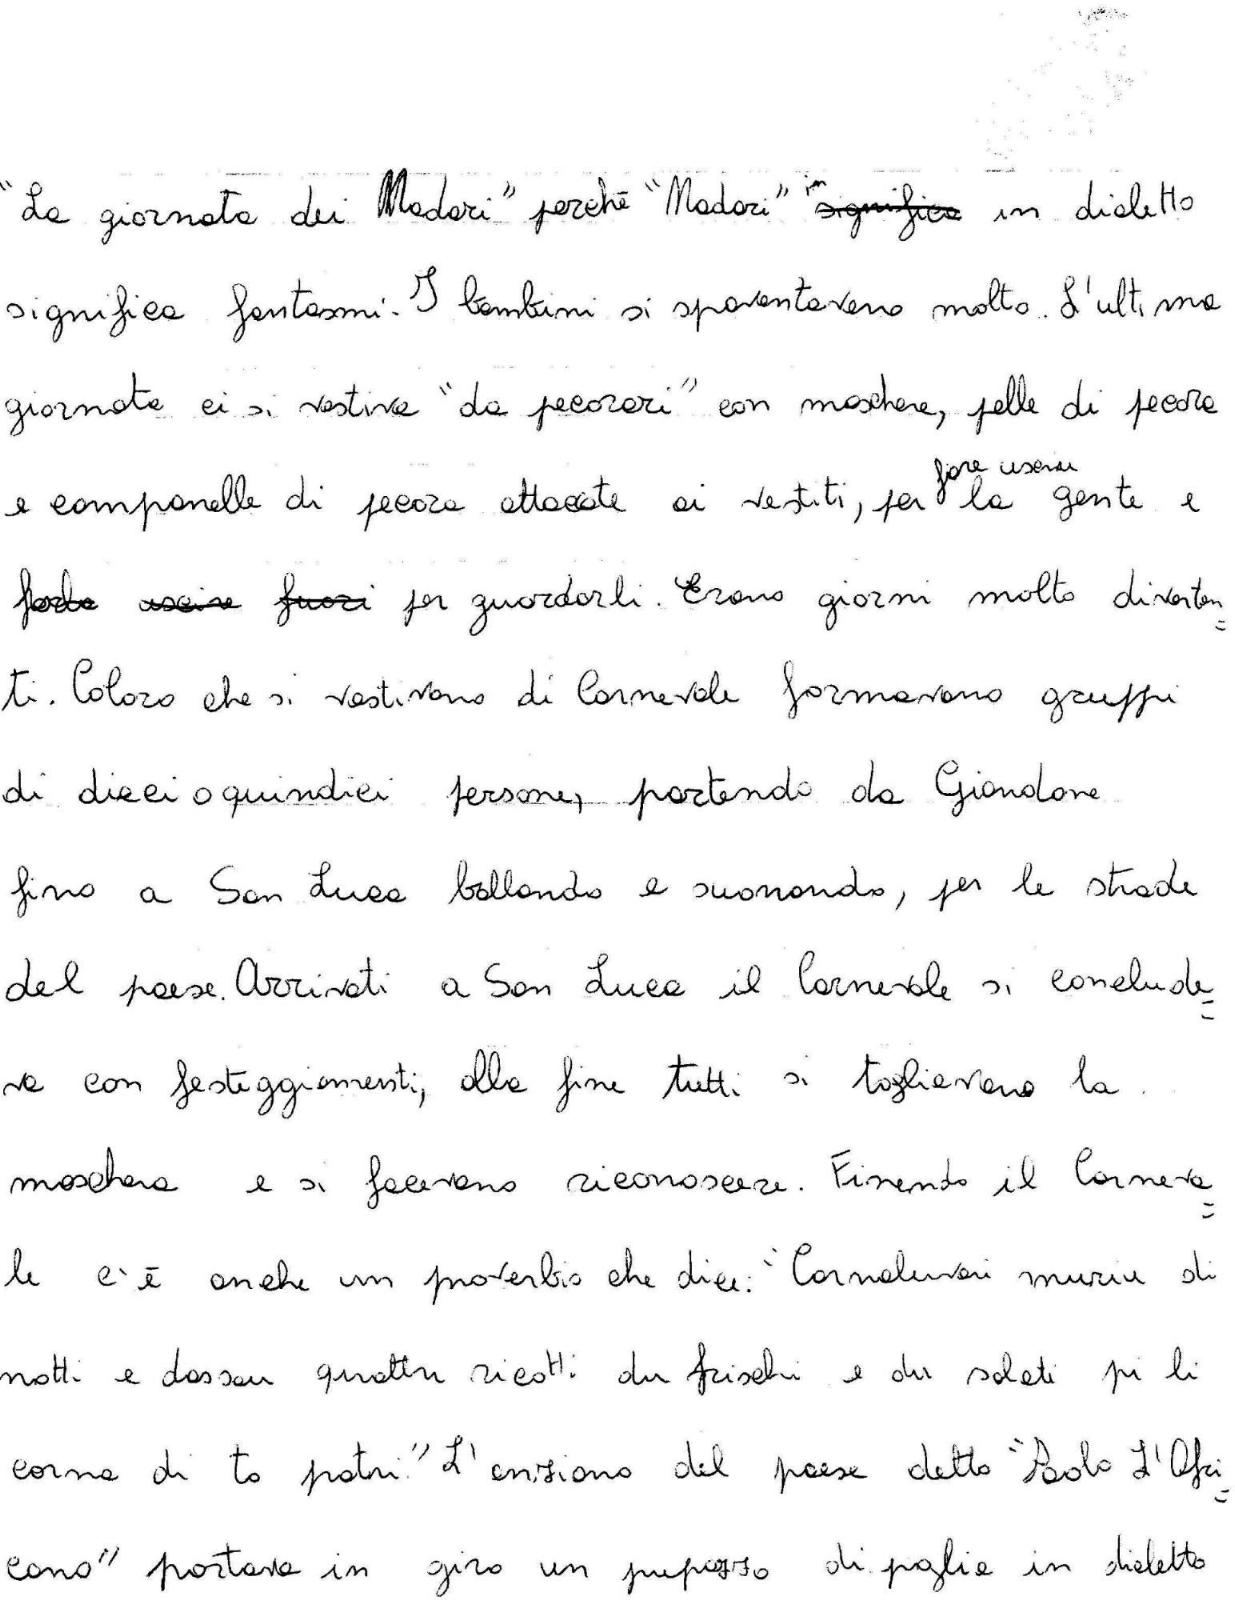 "La giornata dei Madari" perchè "Madari" in significa in dialetto
significa fantasmi. I bambini si spaventavano molto. L'ultima
giornata ci si vestiva "da pecorari" con maschere, pelle di pecora
e campanelle di pecora attaccate ai vestiti, per fare uscire la gente e
farla uscire fuori per guardarli. Erano giorni molto diverten=
ti. Coloro che si vestivano di Carnevale formavano gruppi
di dieci o quindici persone, partendo da Giandone
fino a San Luca ballando e suonando, per le strade
del paese. Arrivati a San Luca il Carnevale si conclude=
va con festeggiamenti, alla fine tutti si toglievano la
maschera e si facevano riconoscere. Finendo il Carneva=
le c'è anche un proverbio che dice: "Carnaluvari muriu di
notti e dassau quattru ricotti du frischi e du salati pi li
corna di to patri." L'anziano del paese detto "Paolo L'Afri=
cano" portava in giro un pupazzo di paglia in dialetto